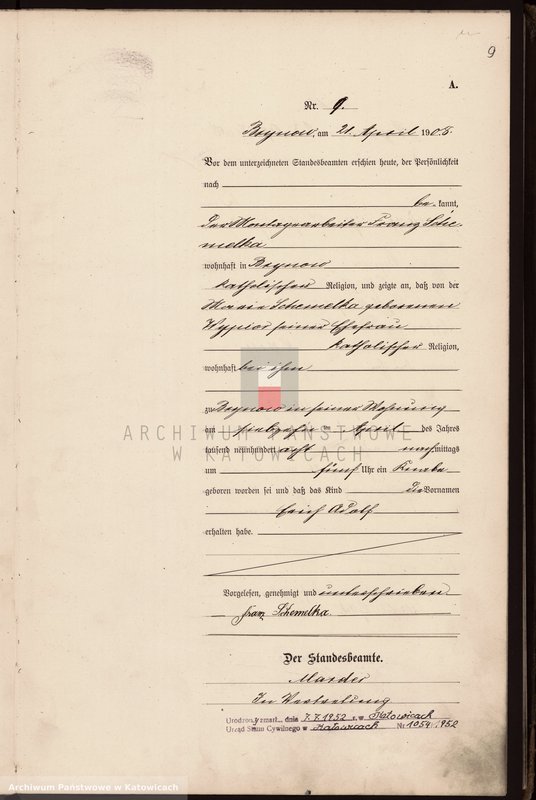 9
A.
Nr. 9.
Brynow, am 21. April 1908.
Vor dem unterzeichneten Standesbeamten erschien heute, der Persönlichkeit
nach
be kannt,
der Montagearbeiter Franz Sche-
melka
wohnhaft in Brynow
katholischer Religion, und zeigte an, daß von der
Marie Schemelka geborenen
Wypior seiner Ehefrau
katholischer Religion,
wohnhaft bei ihm
zu Brynow in seiner Wohnung
am siebzehn ten April des Jahres
tausend neunhundert acht nachmittags
um fünf Uhr ein Knabe
geboren worden sei und daß das Kind die Vornamen
Erich Adolf
erhalten habe.
Vorgelesen, genehmigt und unterschrieben
Franz Schemelka.
Der Standesbeamte.
In Vertretung
zmarł dnia 7.7.1952 r. w Katowicach
Urząd Stanu Cywilnego w Katowicach Nr 1054/952
ARCHIWUM PAŃSTWOWE
W KATOWICACH
Archiwum Państwowe w Katowicach